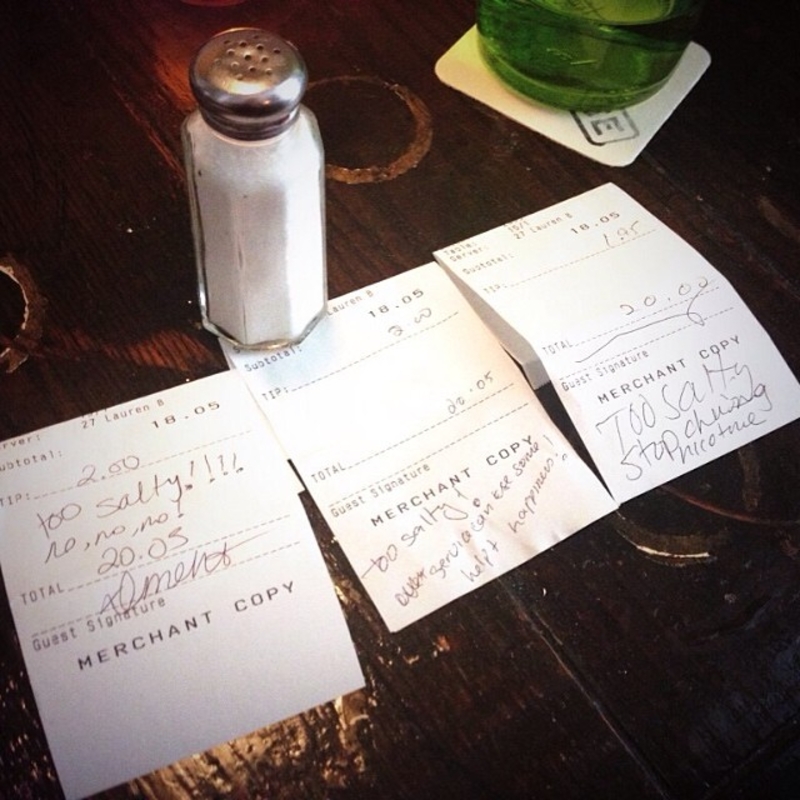 rver: 27 Lauren B
ubtotal: 18.05
TIP: 2.00
too salty!!!!
no, no, no!
20.05
TOTAL
Guest Signature
MERCHANT COPY
Lauren B
Subtotal: 18.05
2.00
TIP:
20.05
TOTAL
Guest Signature
MERCHANT COPY
too salty!
service can use some
help & happiness!
Table: 15/1
Server: 27 Lauren B
Subtotal: 18.05
1.95
TIP:
20.00
TOTAL
Guest Signature
MERCHANT COPY
Too Salty
Stop chewing
nicotine
E